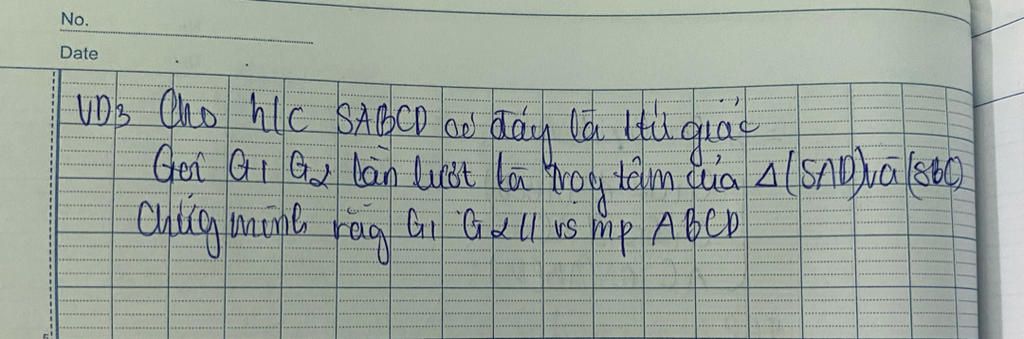 No.
Date
VD3 Cho h/c SABCD có đáy là tứ giác
Gọi G1 G2 lần lượt là trọg tâm của Δ(SAD) và (SBC)
Chứg minh rằg G1 G2 // vs mp ABCD